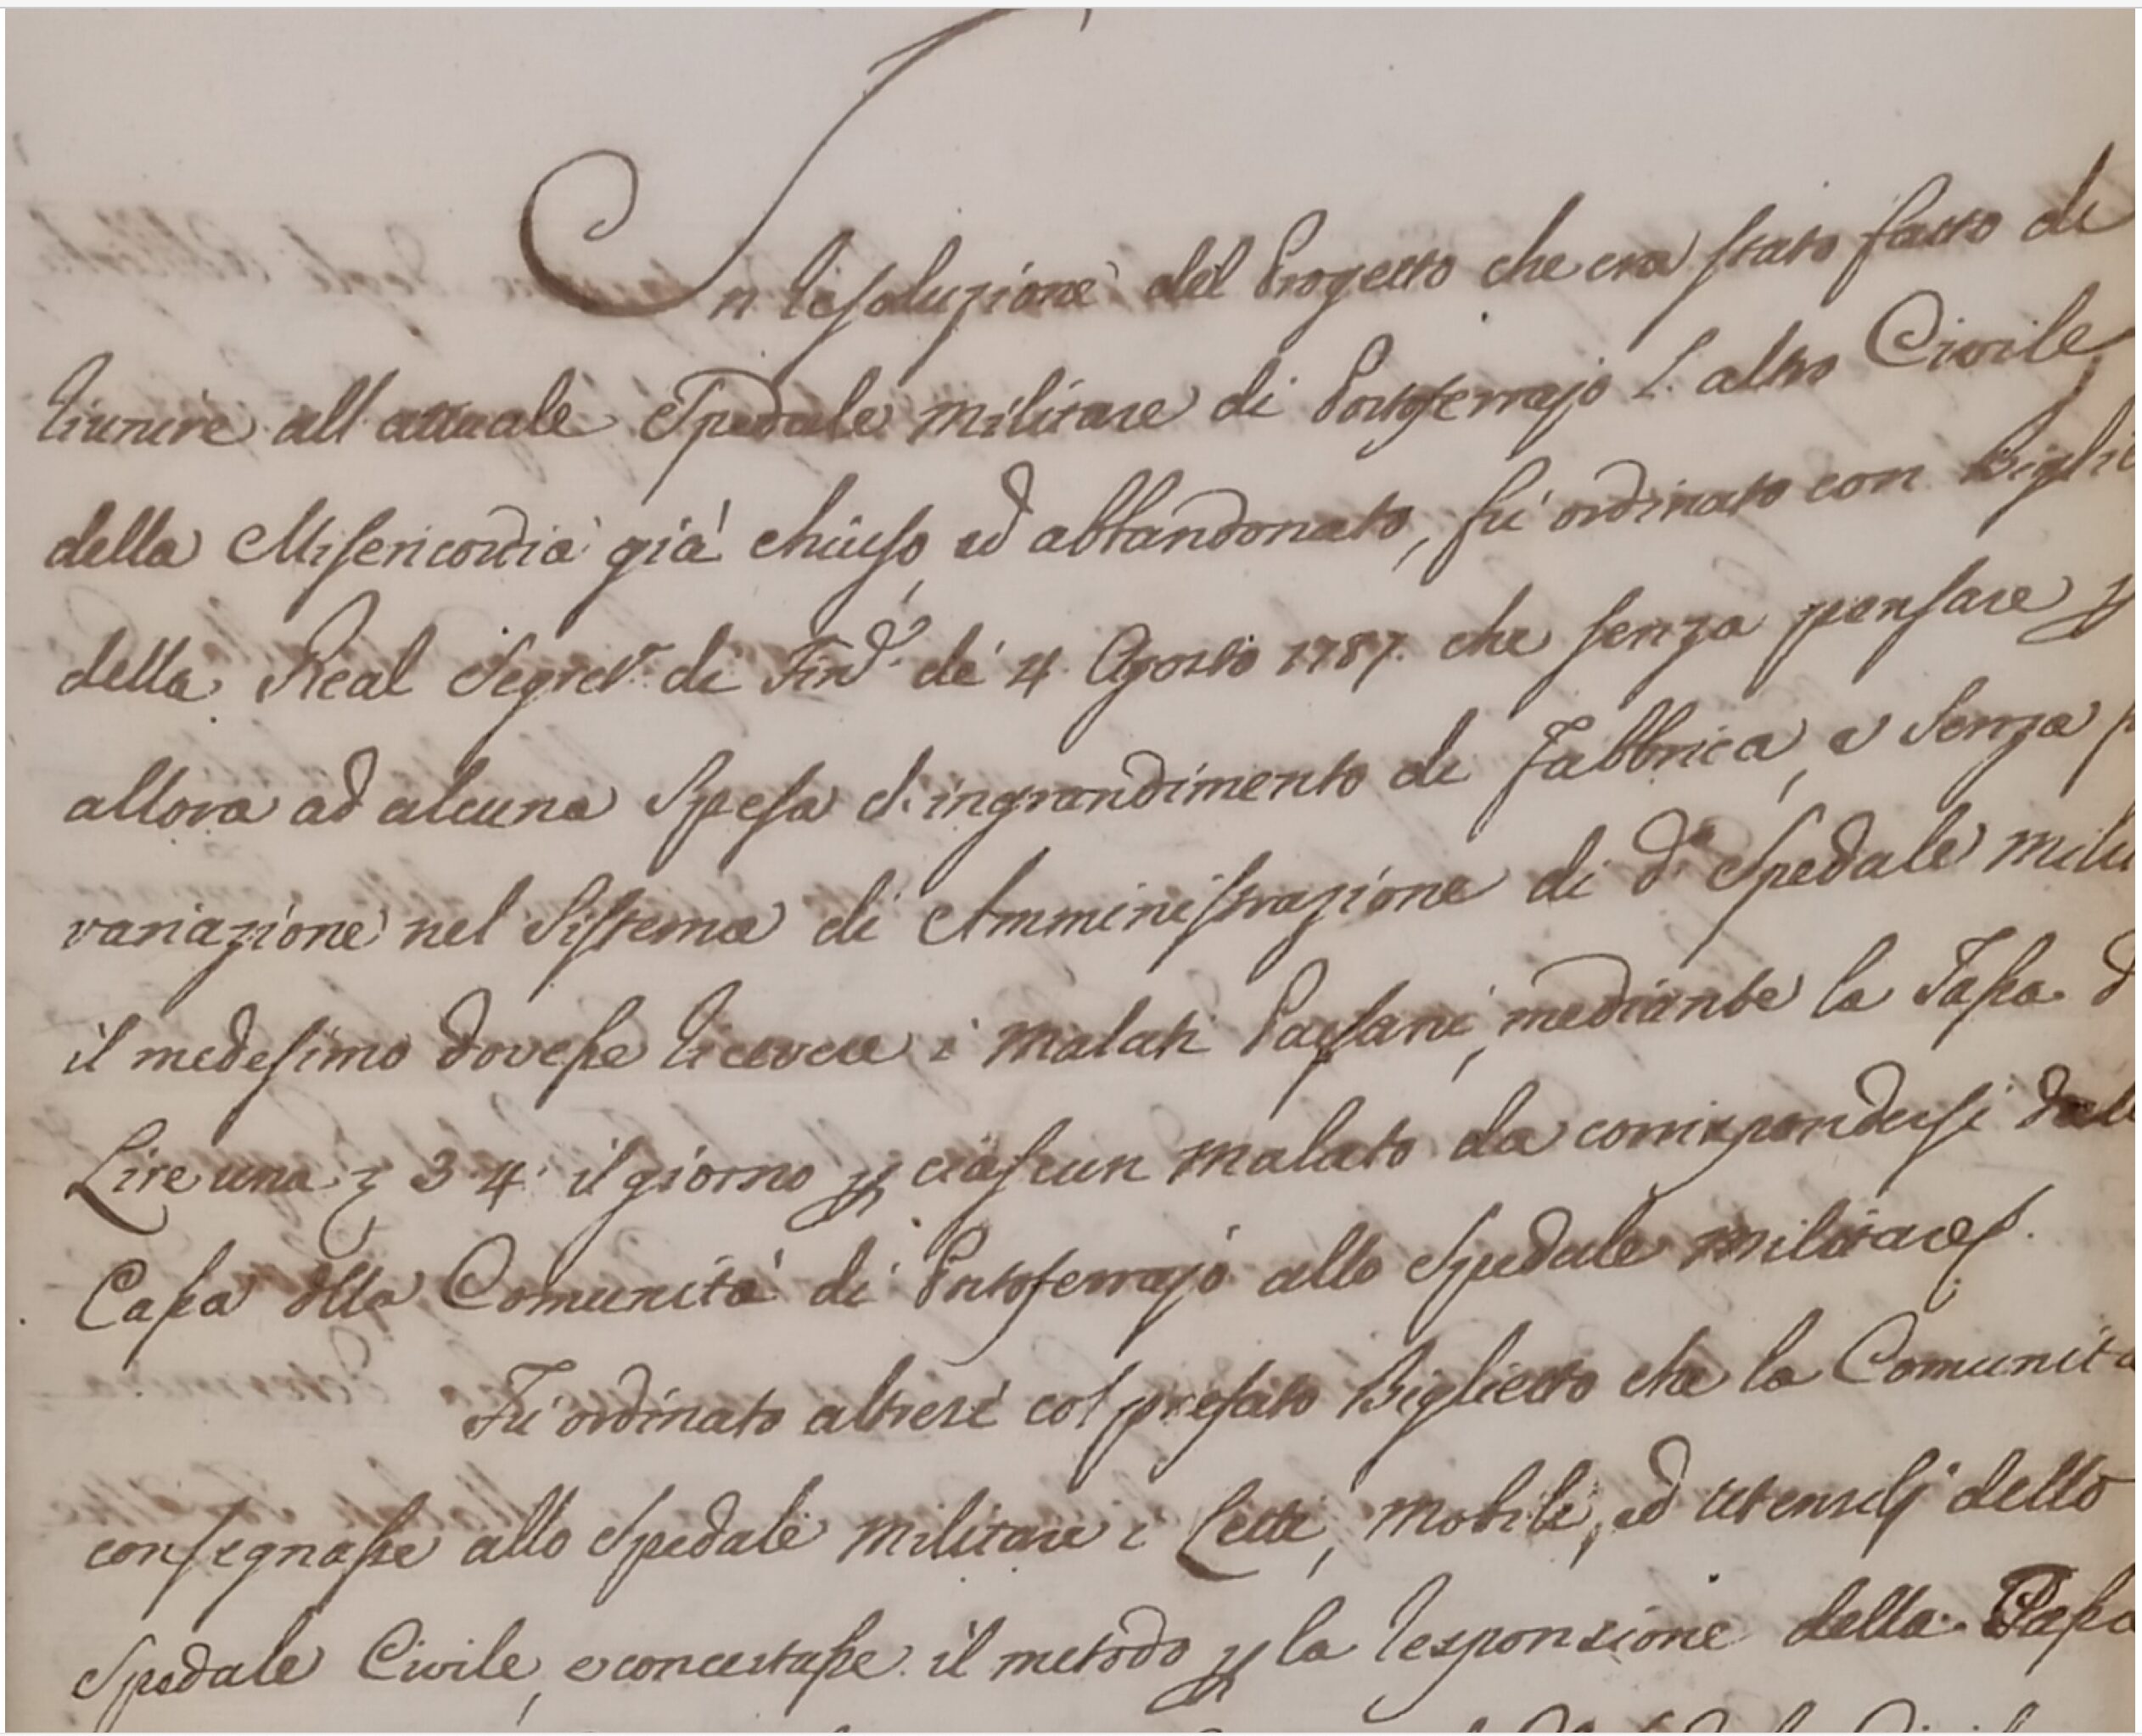 In resoluzione del Progetto che era stato fatto di
riunire all attuale Spedale militare di Portoferrajo l'altro Civile
della Misericordia già chiuso, ed abbandonato, fù ordinato con Bigli
della Real Segret.ª di Fin.ᵉ de' 4. Agosto 1787. che senza pensare p
allora ad alcuna Spesa d'ingrandimento di Fabbrica, e senza
variazione nel Sistema di Amministrazione di d.º Spedale mili
il medesimo dovesse ricevere i malati Paesani, mediante la Tassa d
Lire una 3. 4. il giorno p ciascun malato da corrispondersi dall
Cassa della Comunità di Portoferrajo allo Spedale militare.
Fù ordinato altresì col prefato Biglietto che la Comunità
consegnasse allo Spedale militare i Letti, mobili, ed utensilj dello
Spedale Civile, e concertasse il metodo p la responsione della Tassa